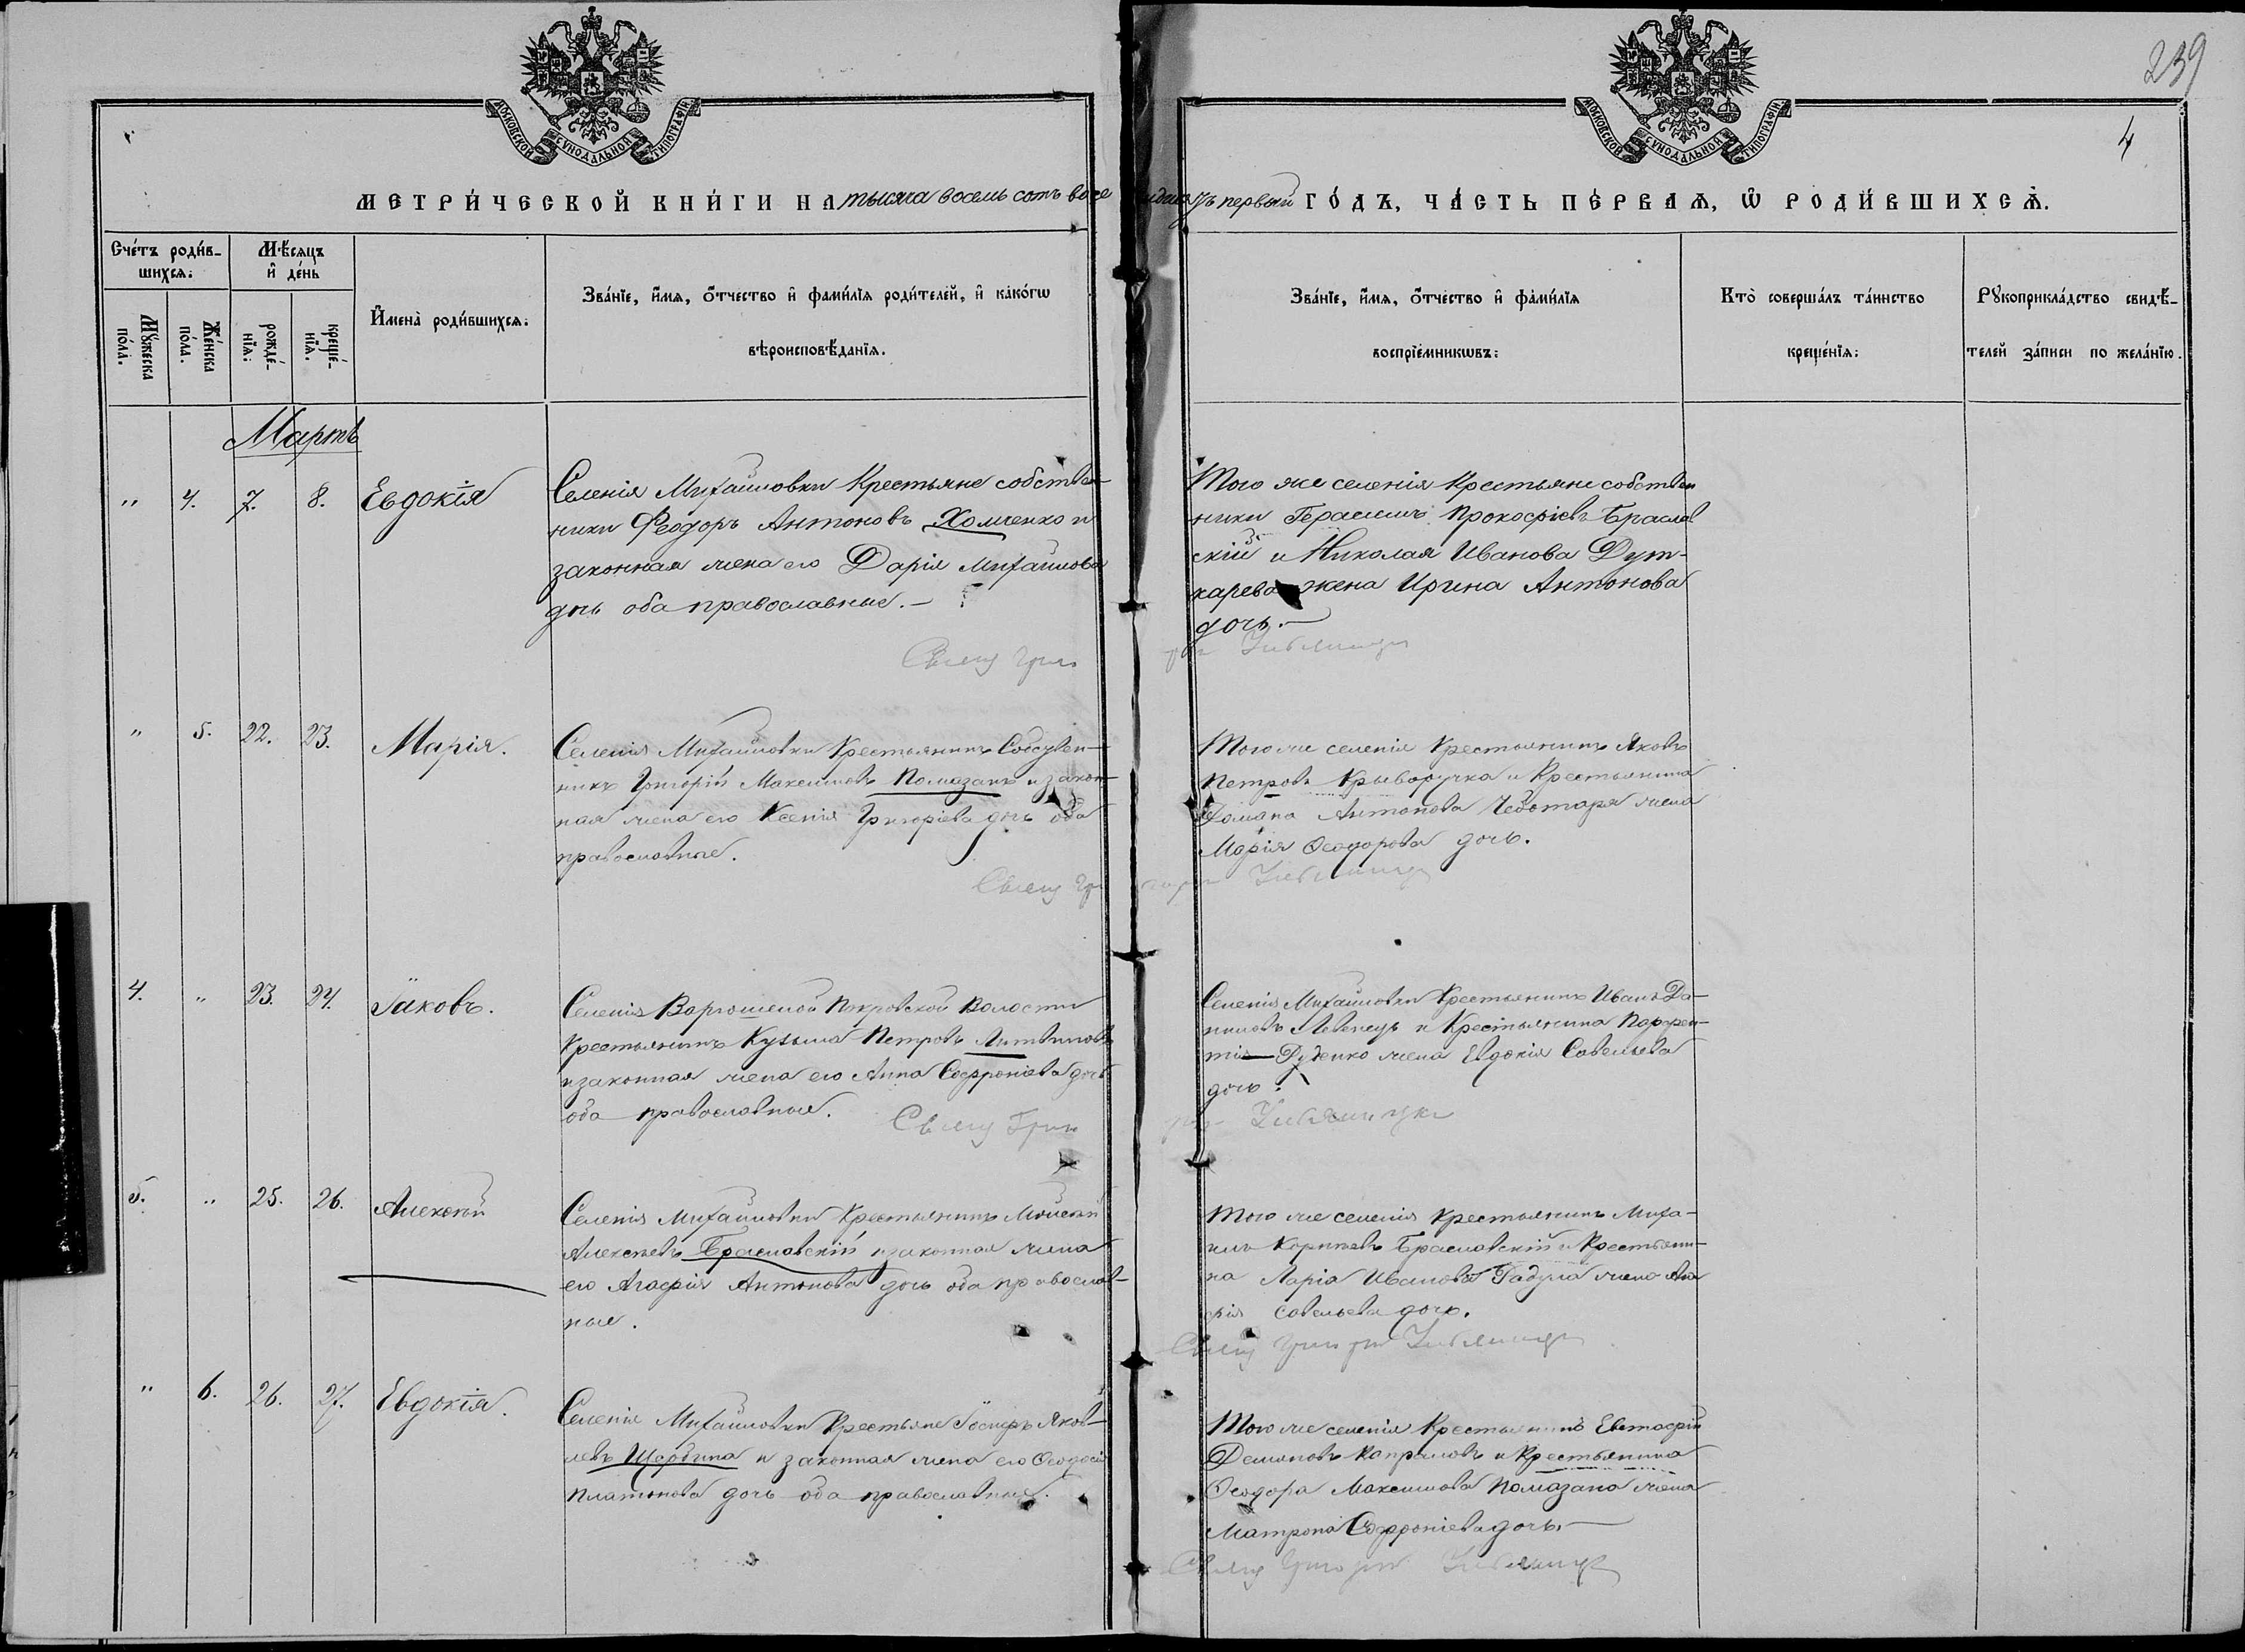 239
4
МОСКОВСКОЙ СУНОДАЛЬНОЙ ТИПОГРАФІИ
МОСКОВСКОЙ СУНОДАЛЬНОЙ ТИПОГРАФІИ
МЕТРИ́ЧЕСКОЙ КНИ́ГИ НА тысяча восемь сотъ восе идесятъ первый ГО́ДЪ, ЧА́СТЬ ПЕ́РВАѦ, Ѡ РОДИ́ВШИХСѦ.
Сче́тъ роди́в-
шихсѧ:
Мѣ́сѧцъ
и҆ де́нь
Мꙋ́жеска
по́ла.
Же́нска
по́ла.
рожде́-
нїѧ:
креще́-
нїѧ.
И҆мена̀ роди́вшихсѧ:
Зва́нїе, и҆́мѧ, ѻ҆́тчество и҆ фами́лїѧ роди́телей, и҆ како́гѡ
вѣроисповѣ́данїѧ.
Зва́нїе, и҆́мѧ, ѻ҆́тчество и҆ фами́лїѧ
воспрїе́мникѡвъ:
Кто̀ соверша́лъ та́инство
креще́нїѧ:
Рꙋкоприкла́дство свидѣ́-
телей за́писи по жела́нїю.
Мартъ
" 4. 7. 8. Евдокія
Селенія Михайловки Крестьяне собствен-
ники Феодоръ Антоновъ Хомченко и
законная жена его Дарія Михайлова
дочь оба православные.—
Того же селенія Крестьяне собствен
ники Герасимъ Прокофіевъ Браслав
скій и Николая Иванова Дут-
карева жена Ирина Антонова
дочь.—
Свящ Григо
" 5. 22. 23. Марія.
Селенія Михайловки Крестьянинъ Собствен-
никъ Григорій Максимовъ Помазанъ и закон-
ная жена его Ксенія Григоріева дочь оба
православные.
Того же селенія Крестьянинъ Яковъ
Петровъ Крыворучка и Крестьянина
Романа Антонова Чеботаря жена
Марія Ѳеодорова дочь.
Свящ Гри
4. " 23. 24. Іаковъ.
Селенія Покровской Волости
Крестьянинъ Кузьма Петровъ Литвиновъ
и законная жена его Анна Софроніева дочь
оба православные.
Селенія Михайловки Крестьянинъ Иванъ Да-
ниловъ Левенецъ и Крестьянина Парфен-
тія Руденко жена Евдокія Савельева
дочь.
Свящ Григ
5. " 25. 26. Алексѣй
Селенія Михайловки Крестьянинъ Моисей
Алексѣевъ Браславскій и законная жена
его Агафія Антонова дочь оба православ-
ные.
Того же селенія Крестьянинъ Миха-
илъ Корнѣевъ Браславскій и Крестьяни-
на Иванова жена Ага
фія Савельева дочь.
Свящ Григорій
" 6. 26. 27. Евдокія.
Селенія Михайловки Крестьяне Іосифъ Яков-
левъ Щербина и законная жена его Ѳеодосія
Платонова дочь оба православные.
Того же селенія Крестьянинъ Евстафій
Демяновъ Капраловъ и Крестьянина
Ѳеодора Максимова Помазана жена
Матрона Софроніева дочь.—
Свящ Григорій